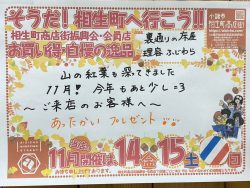 そうだ!相生町へ行こう!!
小諸市
相生町商店街振興会・会員店
お買い得・自慢の逸品
裏通りの床屋
理容ふじわら
山の紅葉も深てきました
11月!今年もあと少し=3
〜ご来店のお客様へ〜
あったかい プレゼント
11月開催は14金15土